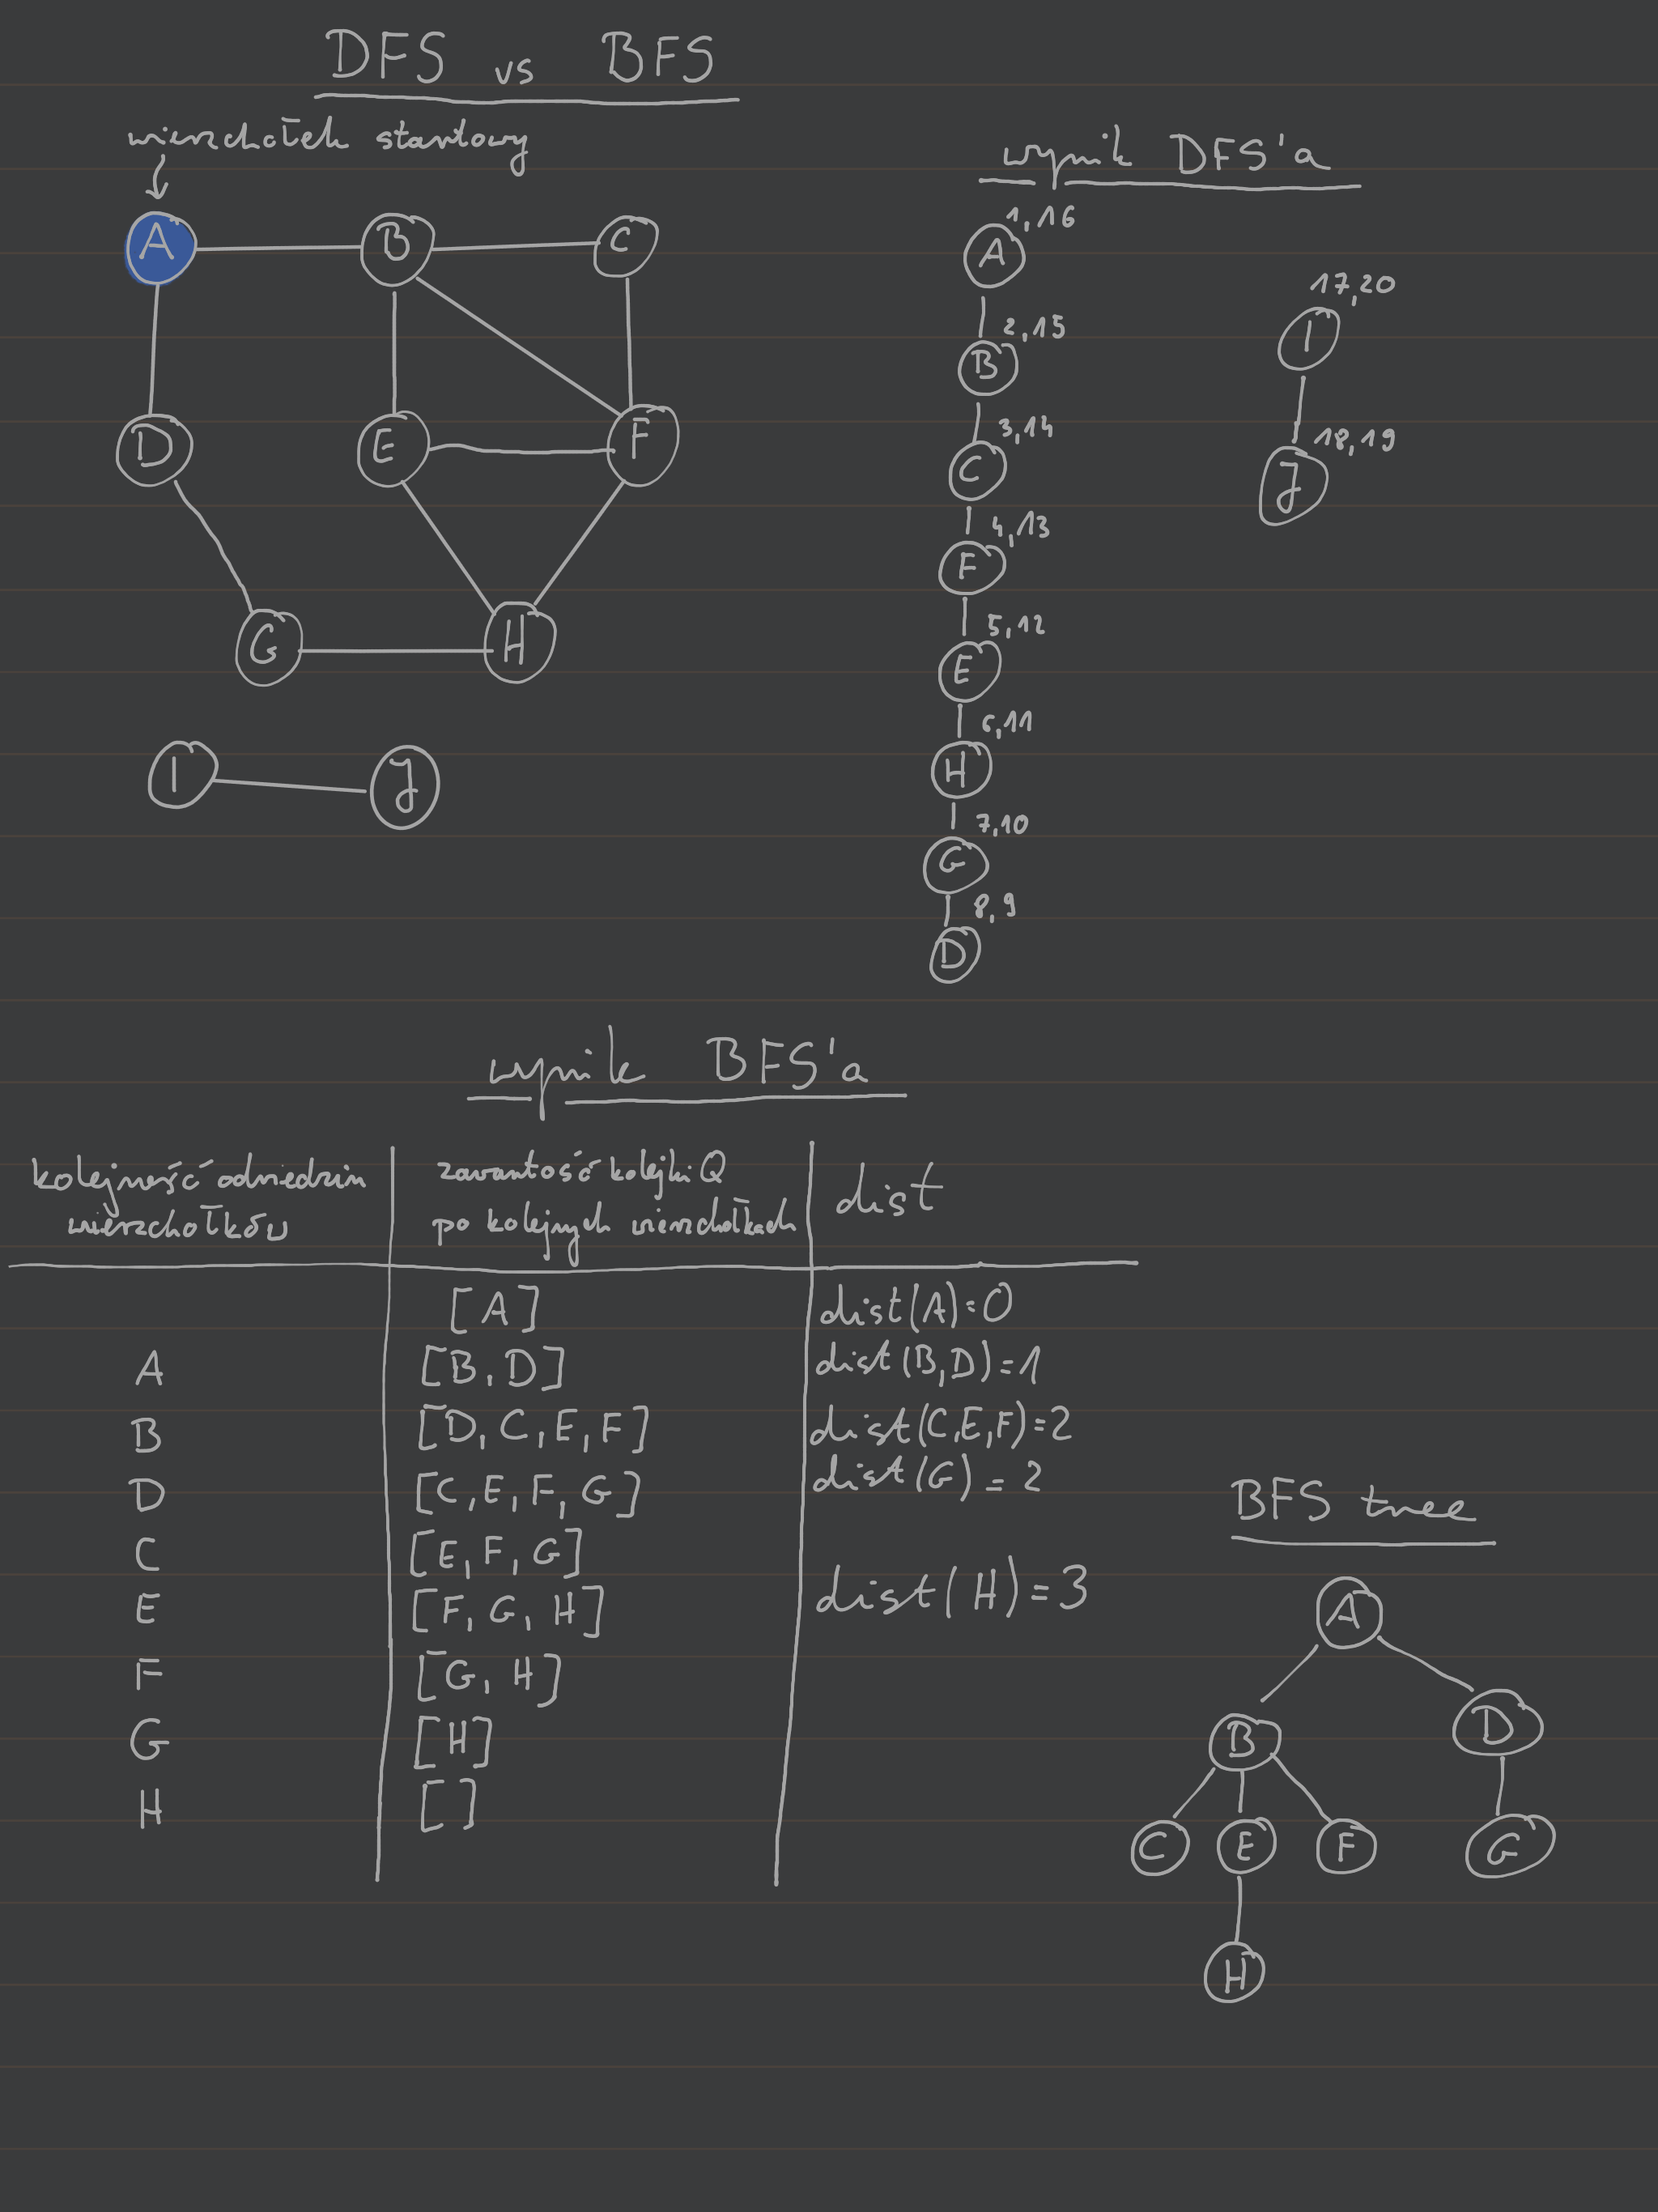 DFS vs BFS
wierzchołek startowy
A B C
D E F
G H
I J
wynik DFS'a
1,16
A
2,15
B
3,14
C
4,13
F
5,12
E
6,11
H
7,10
G
8,9
D
17,20
I
18,19
J
wynik BFS'a
kolejność odwiedzin
wierzchołków
zawartość kolejki Q
po kolejnych wierzchołkach
dist
[A] dist(A)=0
A [B,D] dist(B,D)=1
B [D,C,E,F] dist(C,E,F)=2
D [C,E,F,G] dist(G)=2
C [E,F,G]
E [F,G,H] dist(H)=3
F [G,H]
G [H]
H []
BFS tree
A
B D
C E F G
H